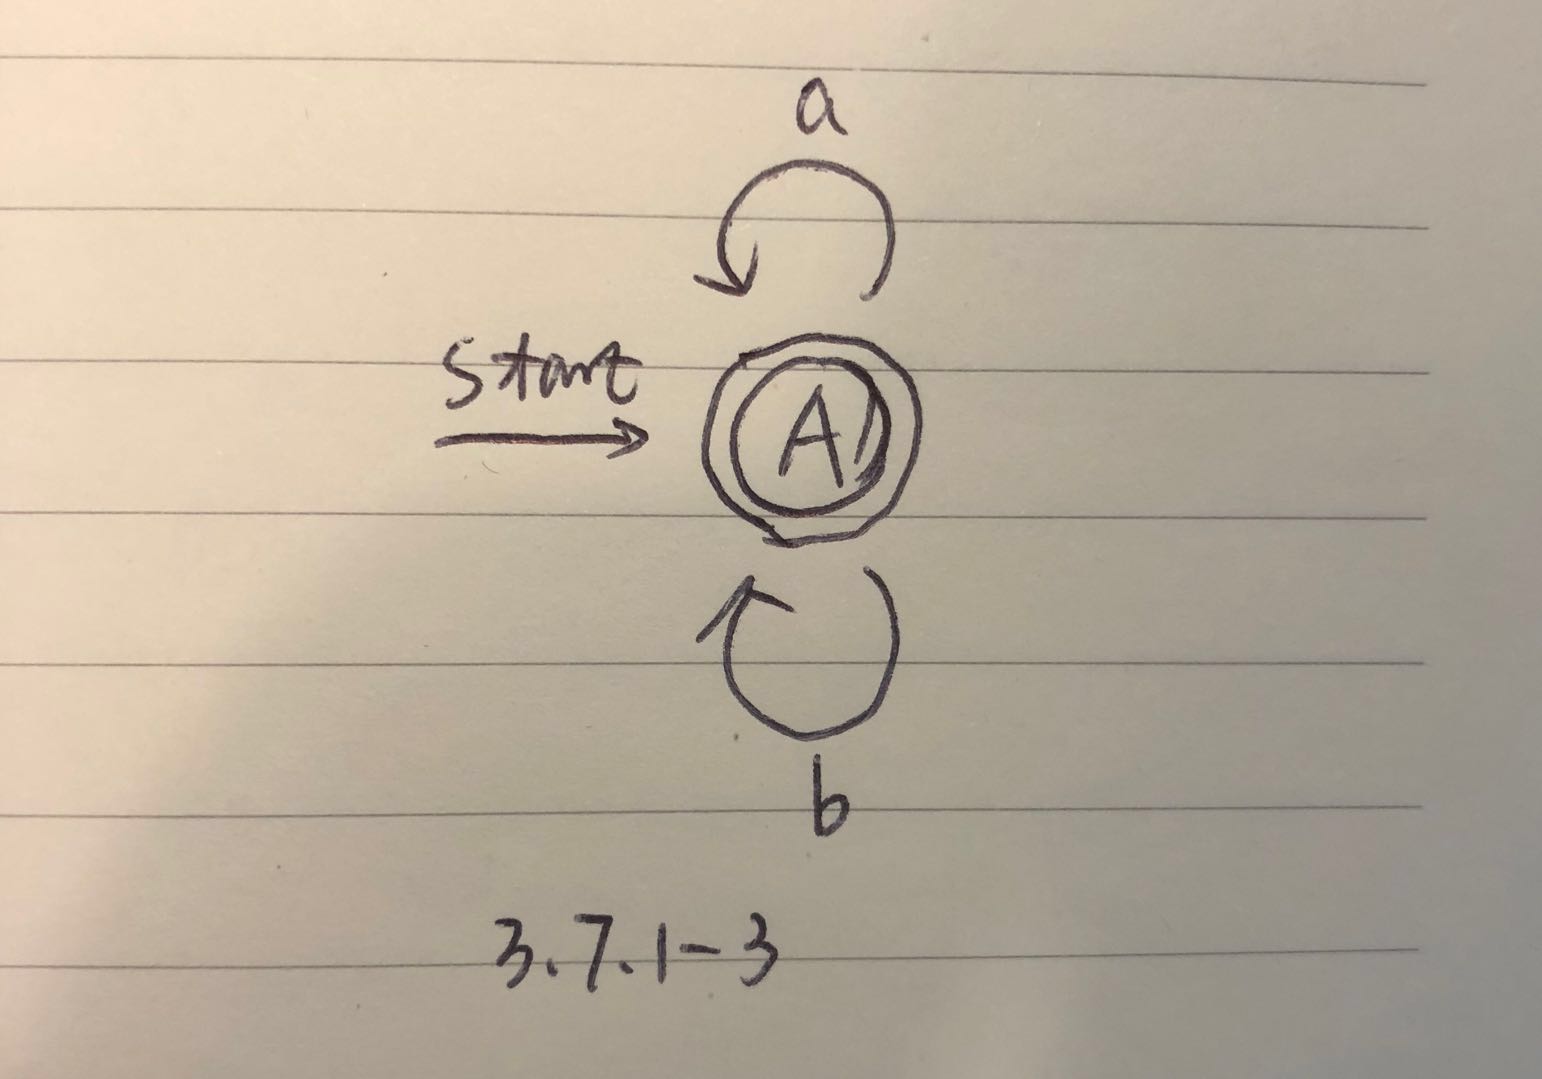 a
start
A
b
3.7.1-3